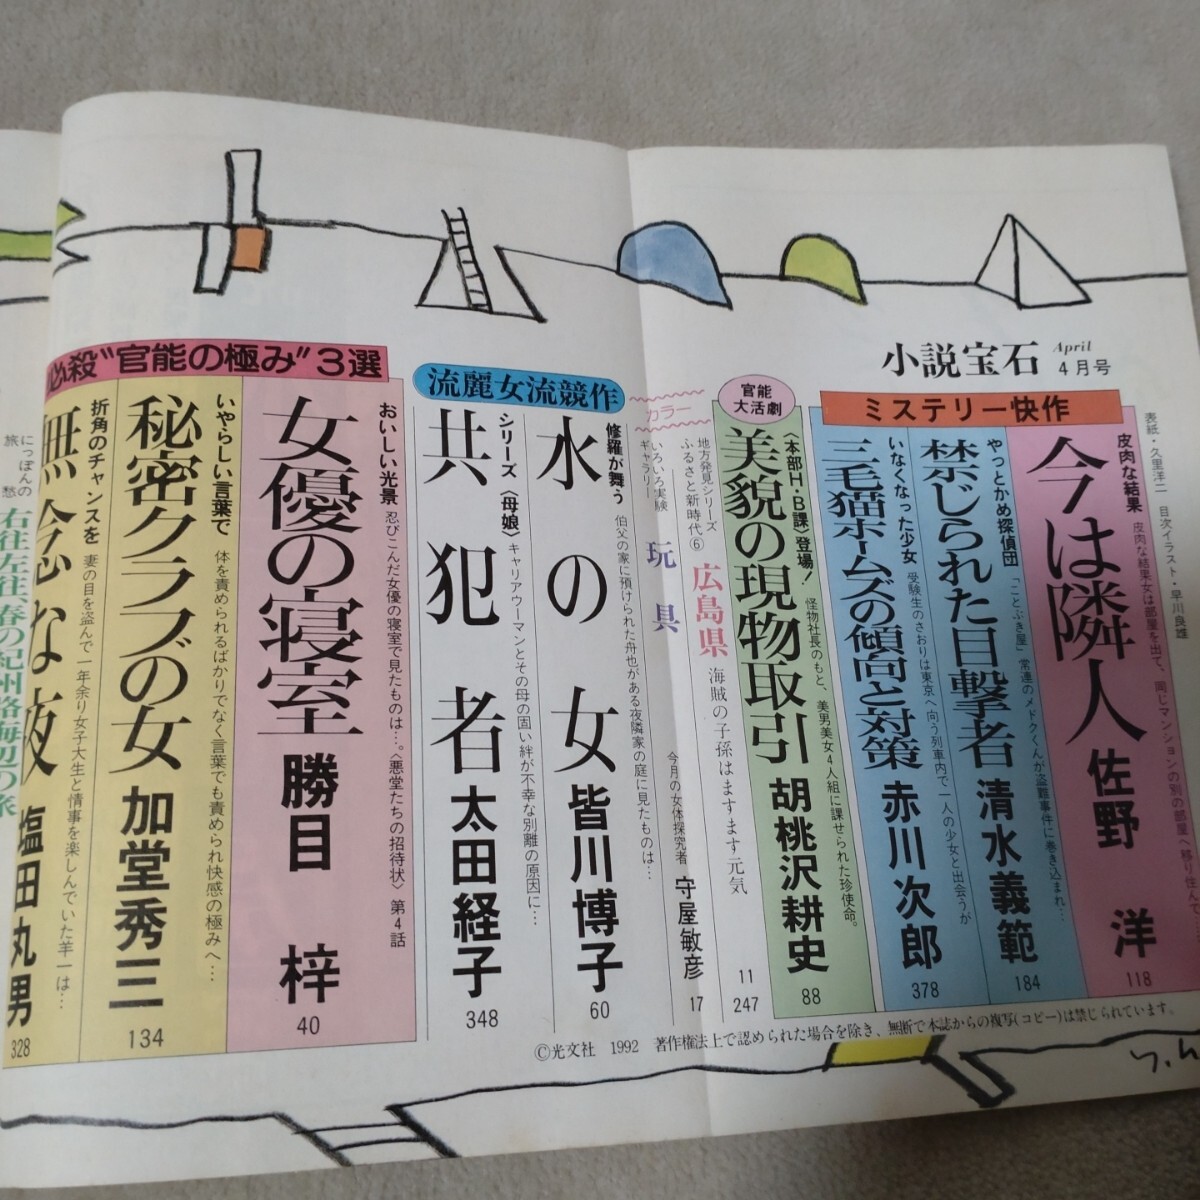 小説宝石
April
4月号
表紙・久里洋二 目次イラスト・早川良雄
ミステリー快作
皮肉な結果
皮肉な結果女は部屋を出て、同じマンションの別の部屋へ移り住んで
今は隣人
佐野 洋
118
やっとかめ探偵団
「ことぶき屋」常連のメドクくんが盗難事件に巻き込まれ…
禁じられた目撃者
清水義範
184
いなくなった少女
受験生のさおりは東京へ向う列車内で一人の少女と出会うが
三毛猫ホームズの傾向と対策
赤川次郎
378
官能
大活劇
〈本部H・B課〉登場!
怪物社長のもと、美男美女4人組に課せられた珍使命。
美貌の現物取引
胡桃沢耕史
88
カラー
ギャラリー
地方発見シリーズ
ふるさと新時代⑥
広島県
海賊の子孫はますます元気
11
247
いろいろ実験
玩具
今月の女体探究者
守屋敏彦
17
流麗女流競作
修羅が舞う
伯父の家に預けられた舟也がある夜隣家の庭に見たものは…
水の女
皆川博子
60
シリーズ〈母娘〉
キャリアウーマンとその母の固い絆が不幸な別離の原因に…
共犯者
太田経子
348
必殺"官能の極み"3選
おいしい光景
忍びこんだ女優の寝室で見たものは…。〈悪堂たちの招待状〉第4話
女優の寝室
勝目 梓
40
いやらしい言葉で
体を責められるばかりでなく言葉でも責められ快感の極みへ…
秘密クラブの女
加堂秀三
134
折角のチャンスを
妻の目を盗んで一年余り女子大生と情事を楽しんでいた羊一は…
無念な夜
塩田丸男
328
にっぽんの
旅 愁
右往左往、春の紀州路海辺の旅
©光文社 1992 著作権法上で認められた場合を除き、無断で本誌からの複写(コピー)は禁じられています。